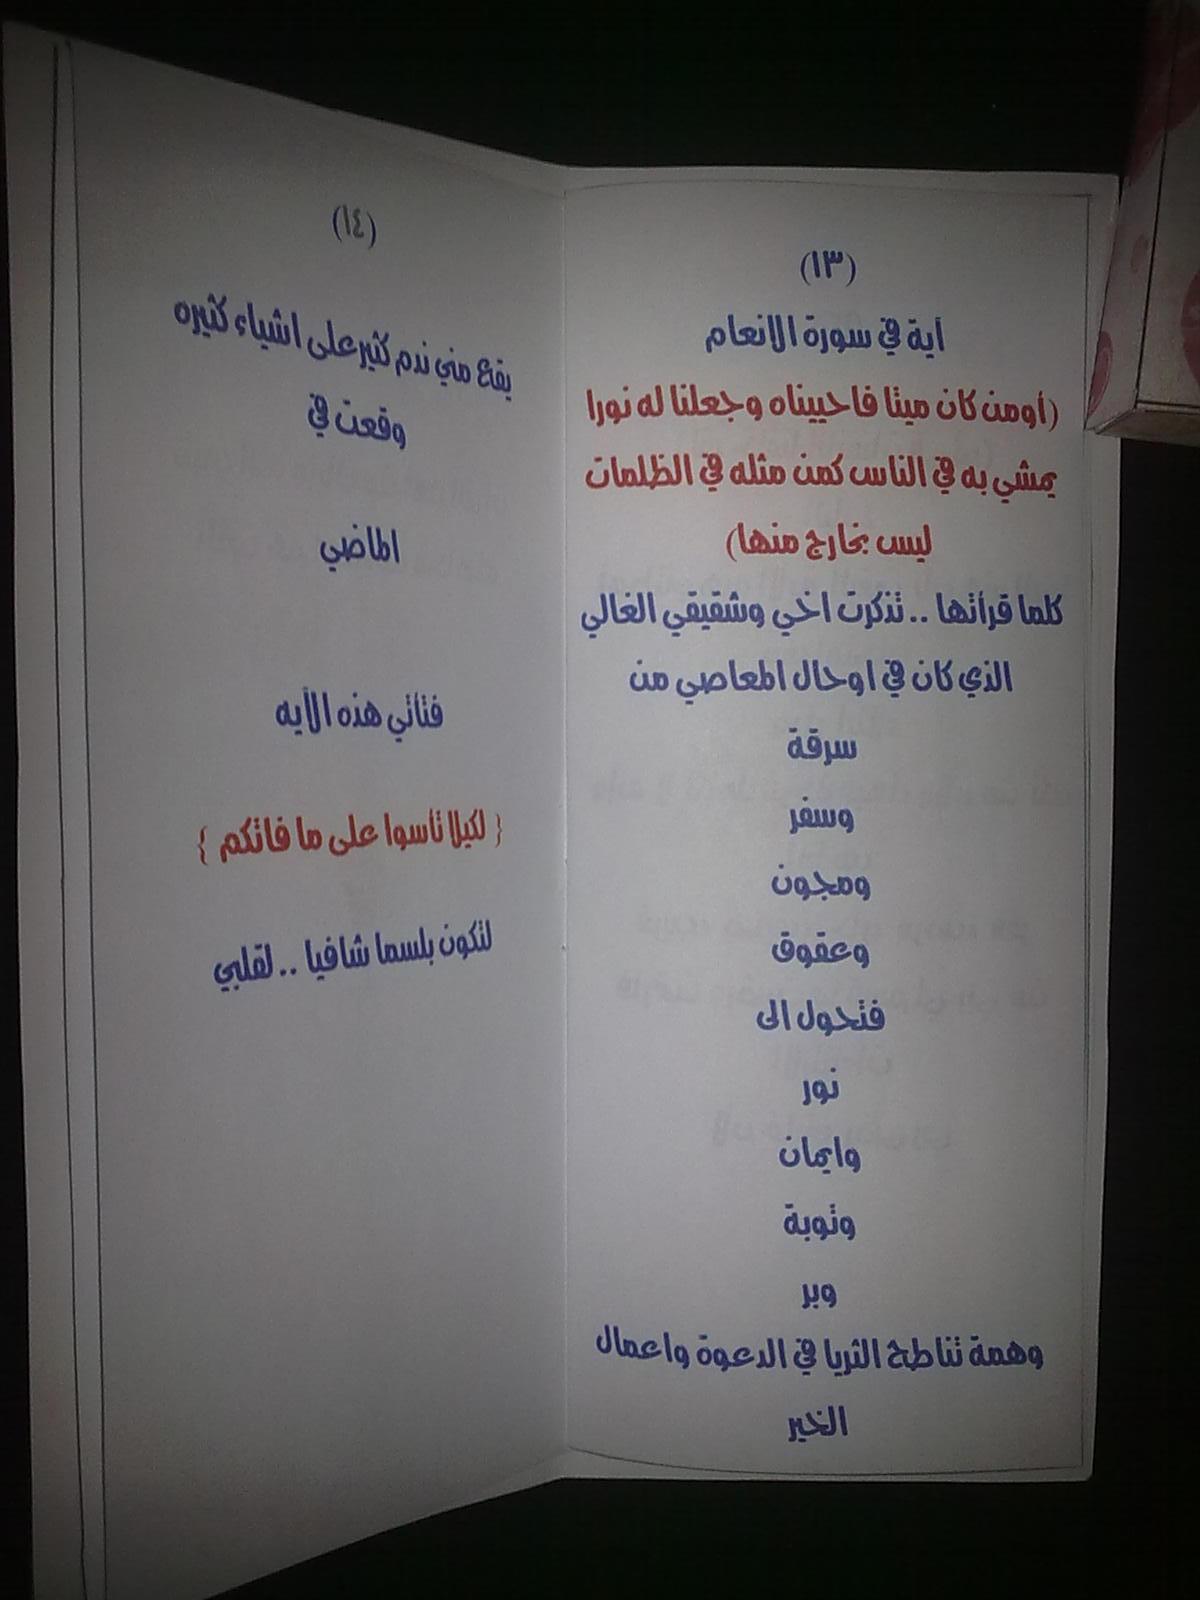 (١٣)
أية في سورة الانعام
(أومن كان ميتا فاحييناه وجعلنا له نورا
يمشي به في الناس كمن مثله في الظلمات
ليس بخارج منها)
كلما قرأتها .. تذكرت اخي وشقيقي الغالي
الذي كان في اوحال المعاصي من
سرقة
وسفر
ومجون
وعقوق
فتحول الى
نور
وايمان
وتوبة
وبر
وهمة تناطح الثريا في الدعوة واعمال
الخير
(١٤)
يقع مني ندم كثير على اشياء كثيره
وقعت في
الماضي
فتأتي هذه الأيه
{ لكيلا تأسوا على ما فاتكم }
لتكون بلسما شافيا .. لقلبي